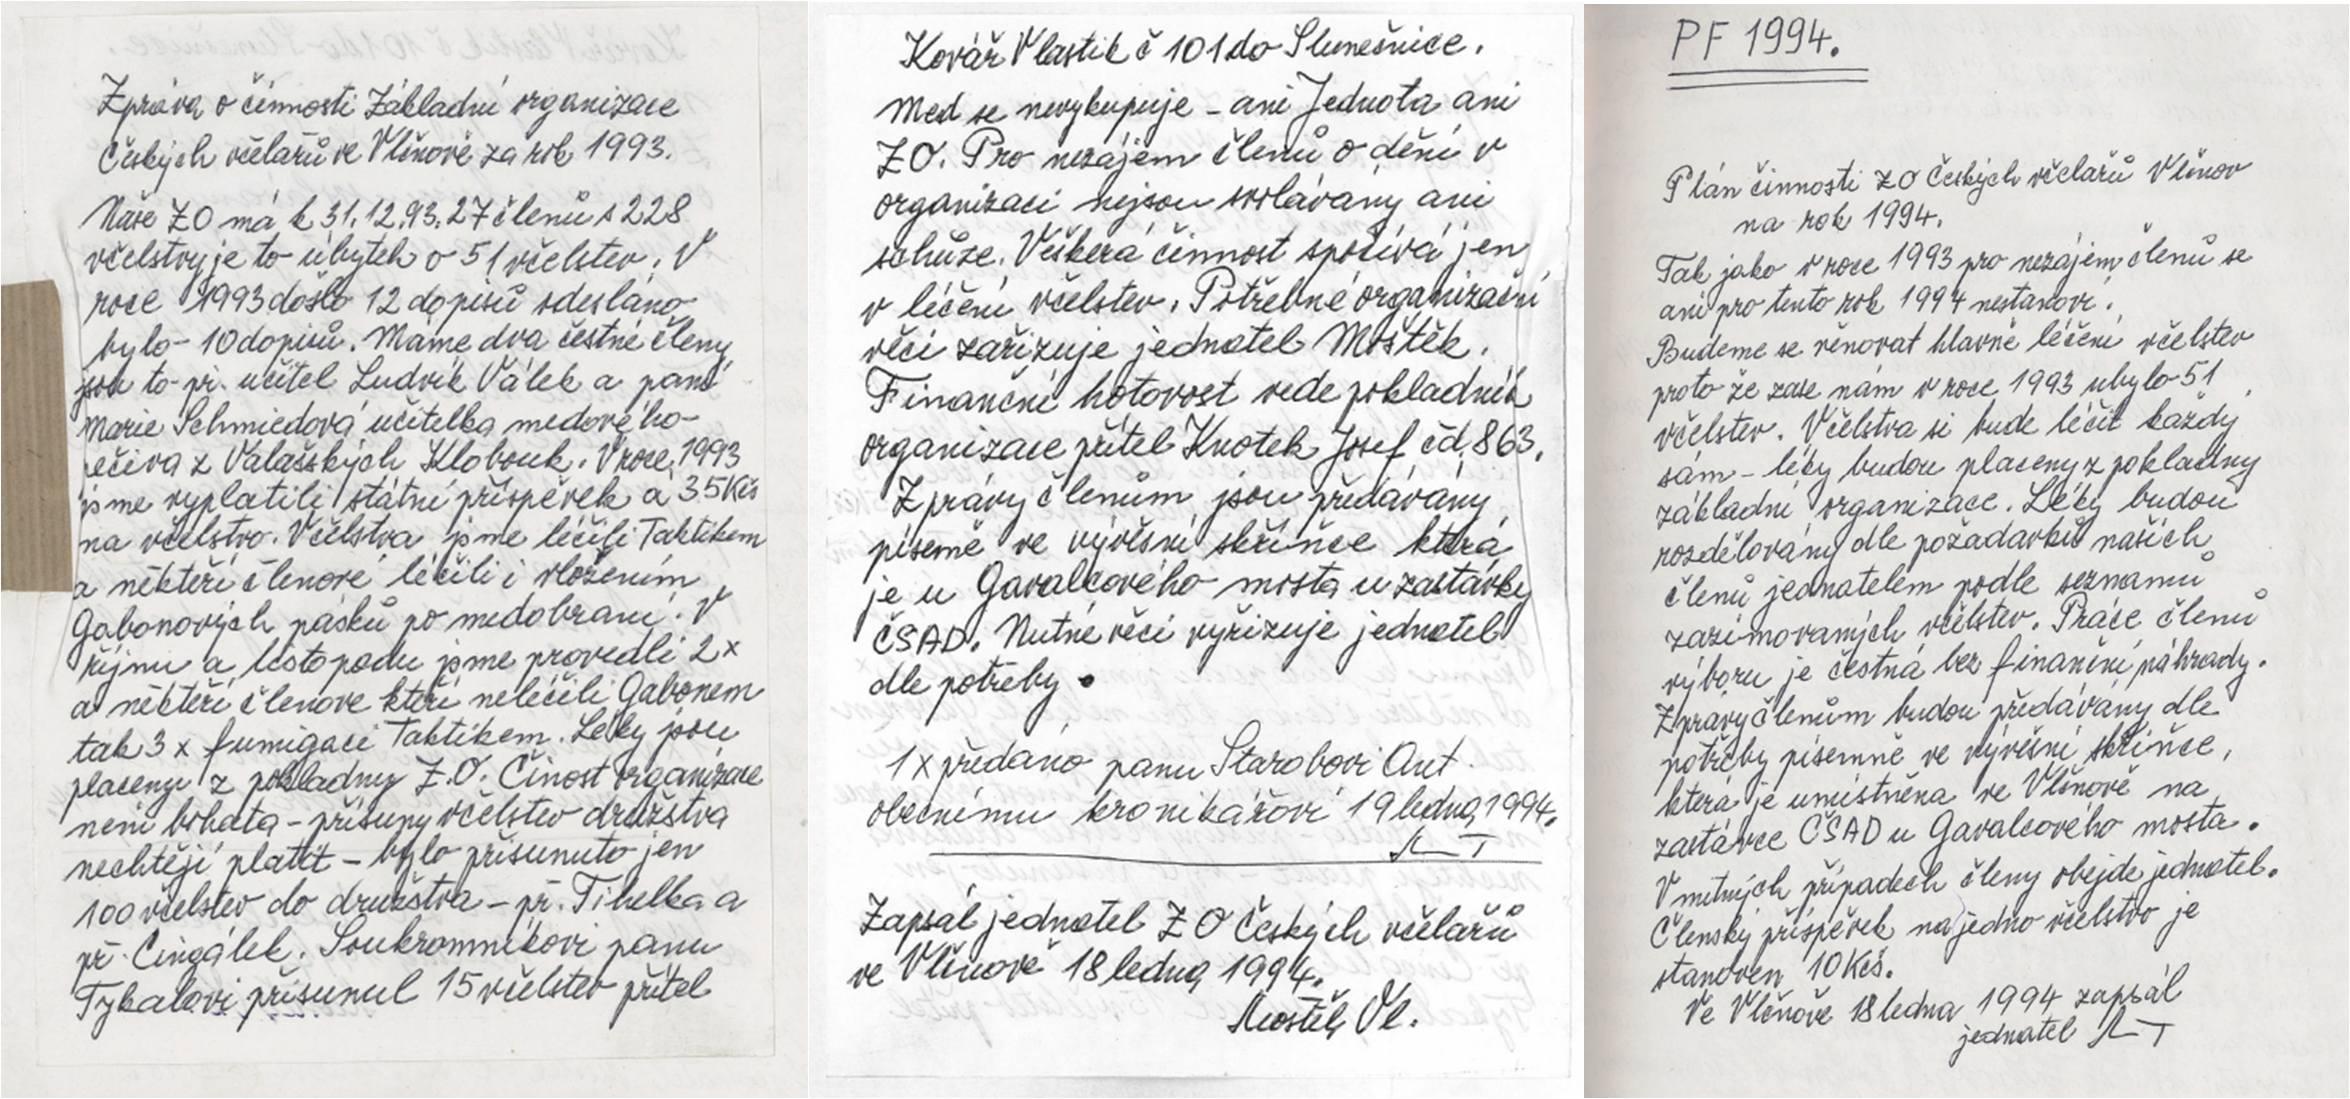 Zpráva o činnosti Základní organizace
Českých včelařů ve Vlčnově za rok 1993.
Naše ZO má k 31.12.93. 27 členů s 228
včelstvy je to úbytek o 51 včelstev. V
roce 1993 došlo 12 dopisů odesláno
bylo - 10 dopisů. Máme dva čestné členy
jsou to př. učitel Ludvík Válek a paní
Marie Schmiedová učitelka medového-
pečiva z Valašských Klobouk. V roce 1993
jsme vyplatili státní příspěvek á 35 Kčs
na včelstvo. Včelstva jsme léčili Taktikem
a někteří členové léčili i vložením
Gabonových pásků po medobraní. V
říjnu a listopadu jsme provedli 2 x
a někteří členove kteří neléčili Gabonem
tak 3 x fumigaci Taktikem. Léky jsou
placeny z pokladny Z.O. Činost organizace
není bohatá - přísuny včelstev družstva
nechtějí platit - bylo přisunuto jen
100 včelstev do družstva - př. Tihelka a
př. Cingálek. Soukromníkovi panu
Tykalovi přisunul 15 včelstev přítel
Kovář Vlastik č 101 do Slunečnice.
Med se nevykupuje - ani Jednota ani
ZO. Pro nezájem členů o dění v
organizaci nejsou svolávány ani
schůze. Veškerá činnost spočívá jen
v léčení včelstev. Potřebné organizační
věci zařizuje jednatel Moštěk.
Finanční hotovost vede pokladník
organizace přítel Knotek Josef čd. 863.
Zprávy členům jsou předávány
písemě ve vývěsní skříňce která
je u Gavalcového mosta u zastávky
ČSAD. Nutné věci vyřizuje jednatel
dle potřeby.
1 x předáno panu Starobovi Ant.
obecnímu kronikářovi 19 ledna 1994.
Zapsal jednatel ZO Českých včelařů
ve Vlčnově 18 ledna 1994.
Moštěk Vl.
PF 1994.
Plán činnosti ZO Českých včelařů Vlčnov
na rok 1994.
Tak jako v roce 1993 pro nezájem členů se
ani pro tento rok 1994 nestanoví.
Budeme se věnovat hlavně léčení včelstev
proto že zase nám v roce 1993 ubylo 51
včelstev. Včelstva si bude léčit každý
sám - léky budou placeny z pokladny
základní organizace. Léky budou
rozdělovány dle požadavků našich
členů jednatelem podle seznamů
zazimovaných včelstev. Práce členů
výboru je čestná bez finanční náhrady.
Zprávy členům budou předávány dle
potřeby písemně ve vývěsní skříňce,
která je umístněna ve Vlčnově na
zastávce ČSAD u Gavalcového mosta.
V nutných případech členy obejde jednatel.
Členský příspěvek na jedno včelstvo je
stanoven 10 Kčs.
Ve Vlčnově 18 ledna 1994 zapsal
jednatel